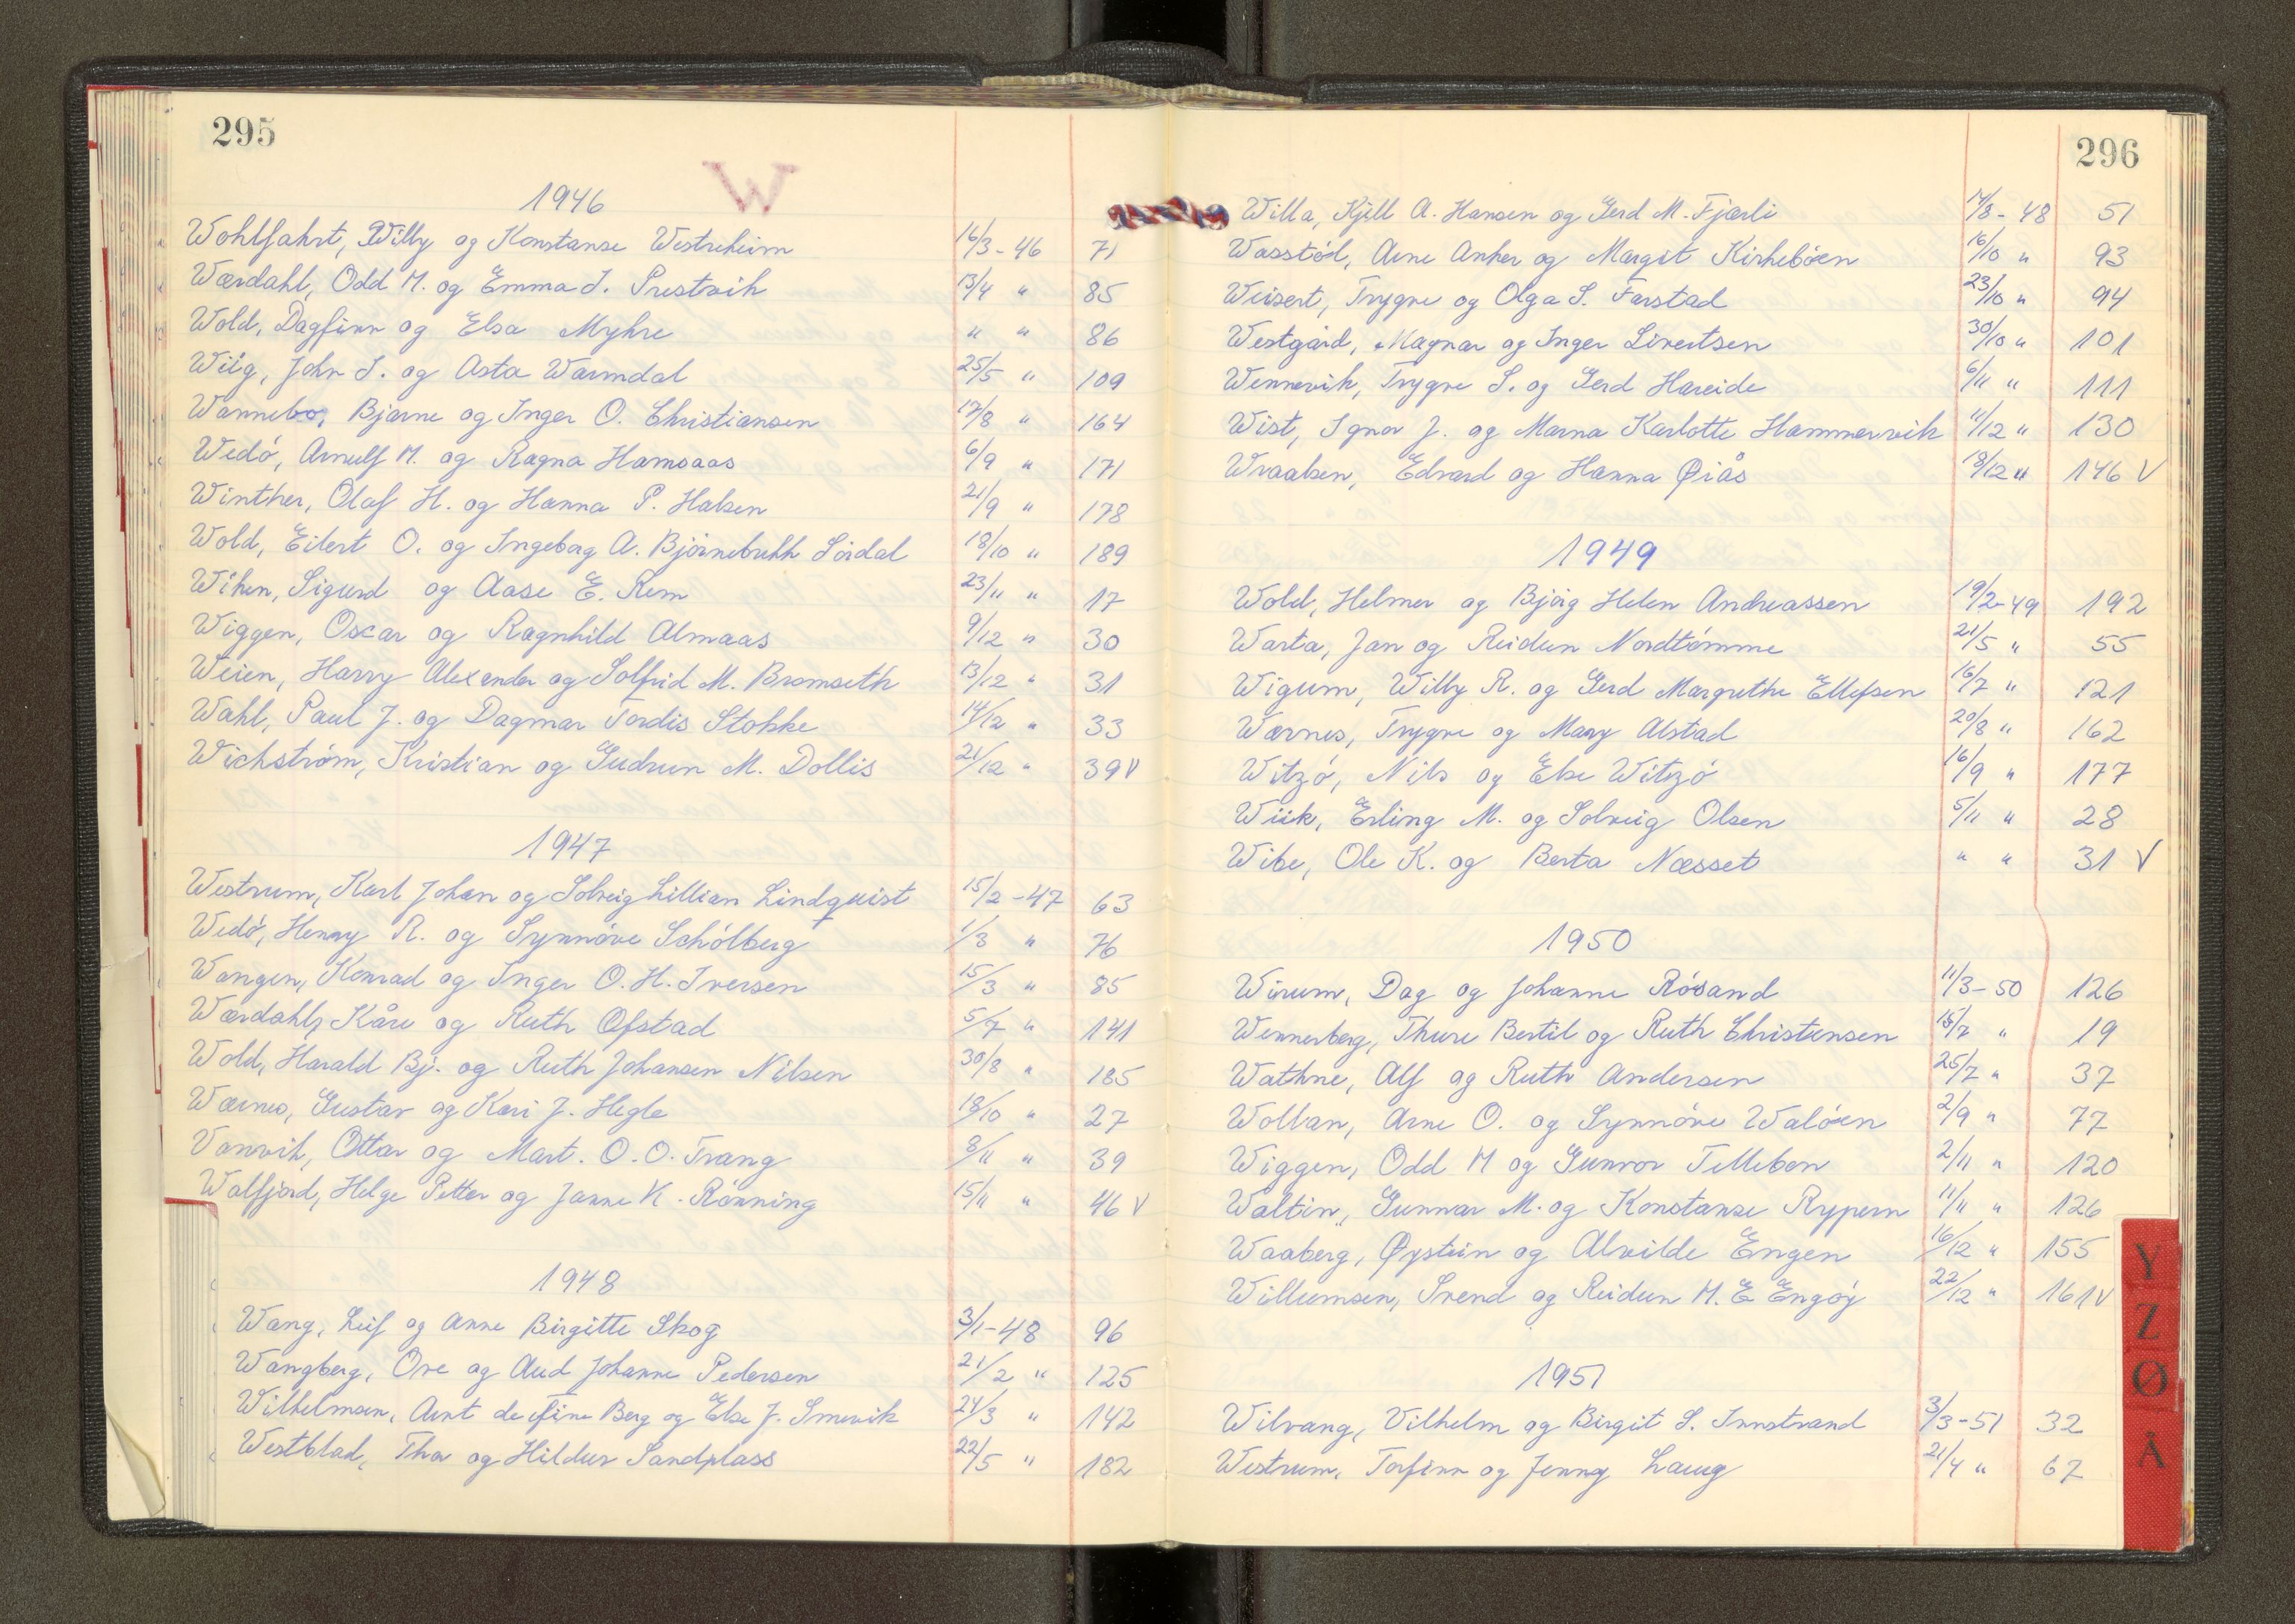 295
W
1946
Wohlfahrt, Willy og Konstanse Westreheim 16/3-46 71
Wærdahl, Odd M. og Emma J. Prestvik 13/4 " 85
Wold, Dagfinn og Elsa Myhre " " 86
Wiig, John S. og Asta Warmdal 25/5 " 109
Wannebo, Bjarne og Inger O. Christiansen 17/8 " 164
Wedö, Arnulf M. og Ragna Hamsaas 6/9 " 171
Winther, Olaf H. og Hanna P. Halsen 21/9 " 178
Wold, Eilert O. og Ingeborg A. Björnebukk Sördal 18/10 " 189
Wiken, Sigurd og Aase E. Rem 23/11 " 17
Wiggen, Oscar og Ragnhild Almaas 9/12 " 30
Weien, Harry Alexander og Solfrid M. Bromseth 13/12 " 31
Wahl, Paul J. og Dagmar Tordis Stokke 14/12 " 33
Wichström, Kristian og Gudrun M. Dollis 21/12 " 39 V
1947
Westrum, Karl Johan og Solveig Lillian Lindquist 15/2-47 63
Wedö, Henry R. og Synnöve Schölberg 1/3 " 76
Wangen, Konrad og Inger O. H. Iversen 15/3 " 85
Wærdahl, Kåre og Ruth Ofstad 5/7 " 141
Wold, Harald Bj. og Ruth Johansen Nilsen 30/8 " 185
Wærnes, Gustav og Kari J. Hegle 18/10 " 27
Vanvik, Ottar og Mart. O. O. Trang 8/11 " 39
Walfjord, Helge Petter og Janne K. Rönning 15/11 " 46 V
1948
Wang, Leif og Anne Birgitte Skog 3/1-48 96
Wangberg, Ove og Aud Johanne Pedersen 21/2 " 125
Wilhelmsen, Arnt de fine Berg og Else J. Smevik 24/3 " 142
Westblad, Thor og Hildur Sandplass 22/5 " 182
296
Willa, Kjell A. Hansen og Gerd M. Fjærli 14/8-48 51
Wasstöl, Arne Anker og Margit Kirkebøen 16/10 " 93
Weisert, Trygve og Olga S. Farstad 23/10 " 94
Westgård, Magnar og Inger Sivertsen 30/10 " 101
Wennevik, Trygve S. og Gerd Hareide 6/11 " 111
Wist, Ignor J. og Marna Karlotte Hammervik 11/12 " 130
Wraalsen, Edvard og Hanna Øiås 18/12 " 146 V
1949
Wold, Helmer og Bjørg Helen Andreassen 19/2-49 192
Warta, Jan og Reidun Nordtömme 21/5 " 55
Wigum, Willy R. og Gerd Margrethe Ellefsen 16/7 " 121
Wærnes, Trygve og Mary Alstad 20/8 " 162
Witzö, Nils og Else Witzö 16/9 " 177
Wiik, Erling M. og Solveig Olsen 5/11 " 28
Wibe, Ole K. og Berta Næsset " " 31 V
1950
Wirum, Dag og Johanne Rösand 11/3-50 126
Wennerberg, Thure Bertil og Ruth Christensen 15/7 " 19
Wathne, Alf og Ruth Andersen 25/7 " 37
Wollan, Arne O. og Synnöve Waløen 2/9 " 77
Wiggen, Odd M og Gunvor Tillebon 2/11 " 120
Waltin, Gunnar M. og Konstanse Rypern 11/11 " 126
Waaberg, Øystein og Alvilde Engen 16/12 " 155
Willumsen, Svend og Reidun M. E Engöy 22/12 " 161 V
1951
Wilvang, Vilhelm og Birgit S. Innstrand 3/3-51 32
Westrum, Torfinn og Jenny Laug 21/4 " 67
Y
Z
Ø
Å